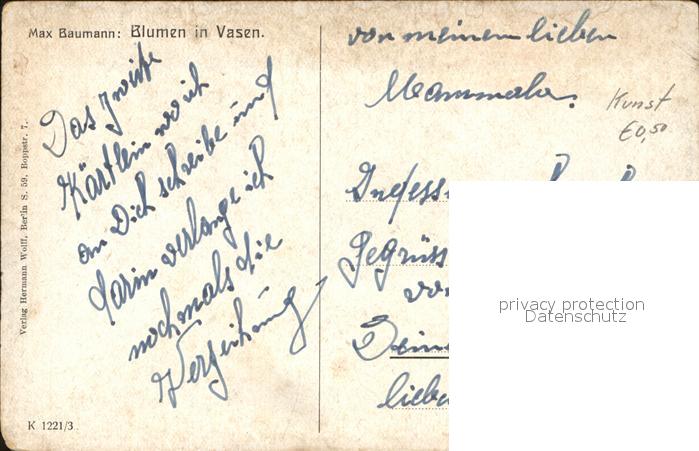 Max Baumann: Blumen in Vasen.
Das zweite
Kärtlein wo ich
an Dich schreibe und
darin verlange ich
nochmals die
Verzeihung
Verlag Hermann Wolff, Berlin S. 59, Boppstr. 7.
K 1221/3
von meinem lieben
Mammale.
Kunst
€0,50
Indess
Gegrüss
von
Deine
liebe
privacy protection
Datenschutz